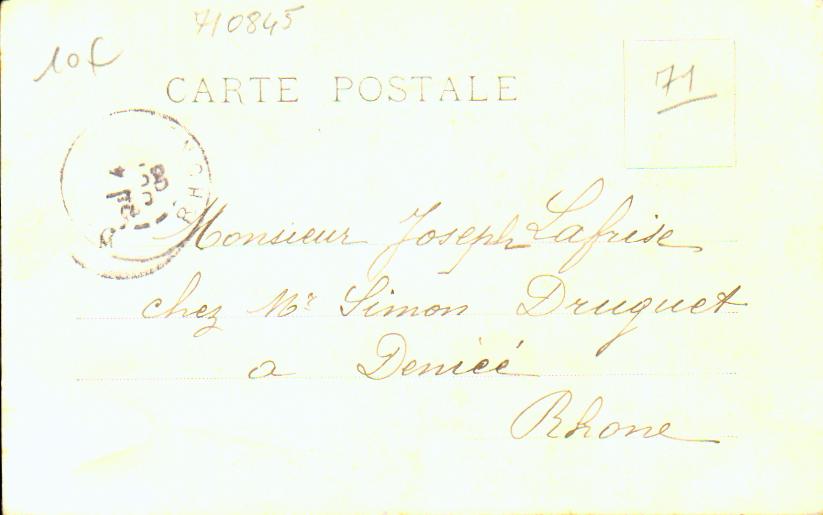 710845
10f
CARTE POSTALE
71
RHONE
Monsieur Joseph Lafrise
chez Mr Simon Druguet
a Denicé
Rhone